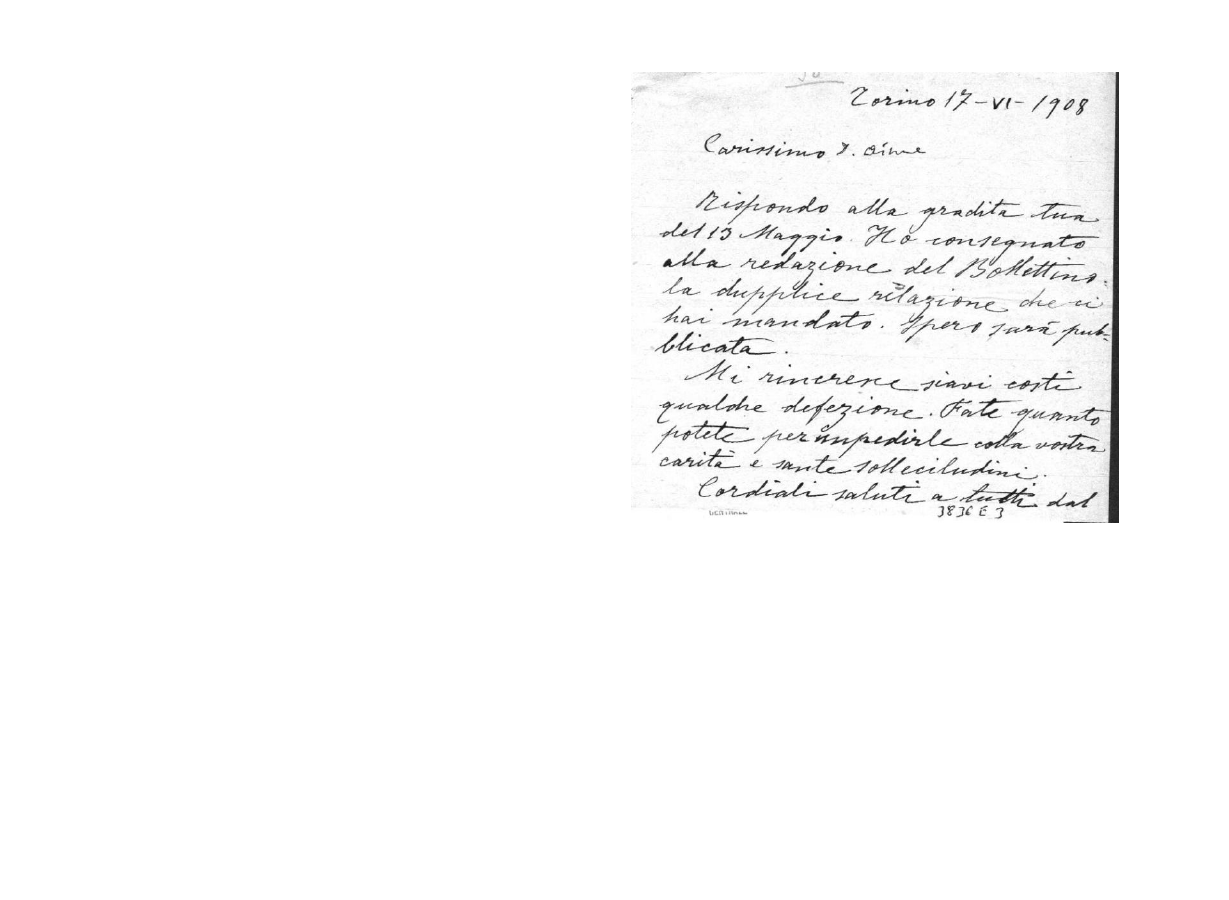 Torino 17-VI-1908
Carissimo D. Aime
Rispondo alla gradita tua
del 13 Maggio. Ho consegnato
alla redazione del Bollettino
la dupplice relazione che ci
hai mandato. Spero sarà pub-
blicata.
Mi rincresce siavi costì
qualche defezione. Fate quanto
potete per impedirle colla vostra
carità e sante sollecitudini.
Cordiali saluti a tutti dal
3836 E 3